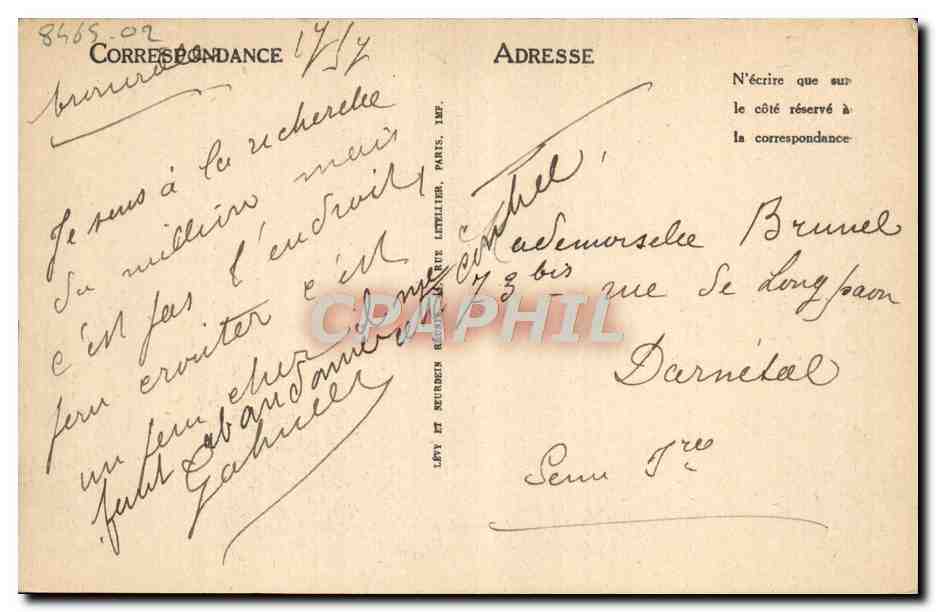 8465-02
CORRESPONDANCE
17/57
Je suis à la recherche
du million mais
c'est pas l'endroit,
c'est
un peu cher
Gabriel
LÉVY ET NEURDEIN RÉUNIS, 44, RUE LETELLIER, PARIS, IMP.
ADRESSE
N'écrire que sur
le côté réservé à
la correspondance
Mademoiselle Brunel
73 bis rue de Longpaon
Darnétal
Seine Ire
CPAPHIL